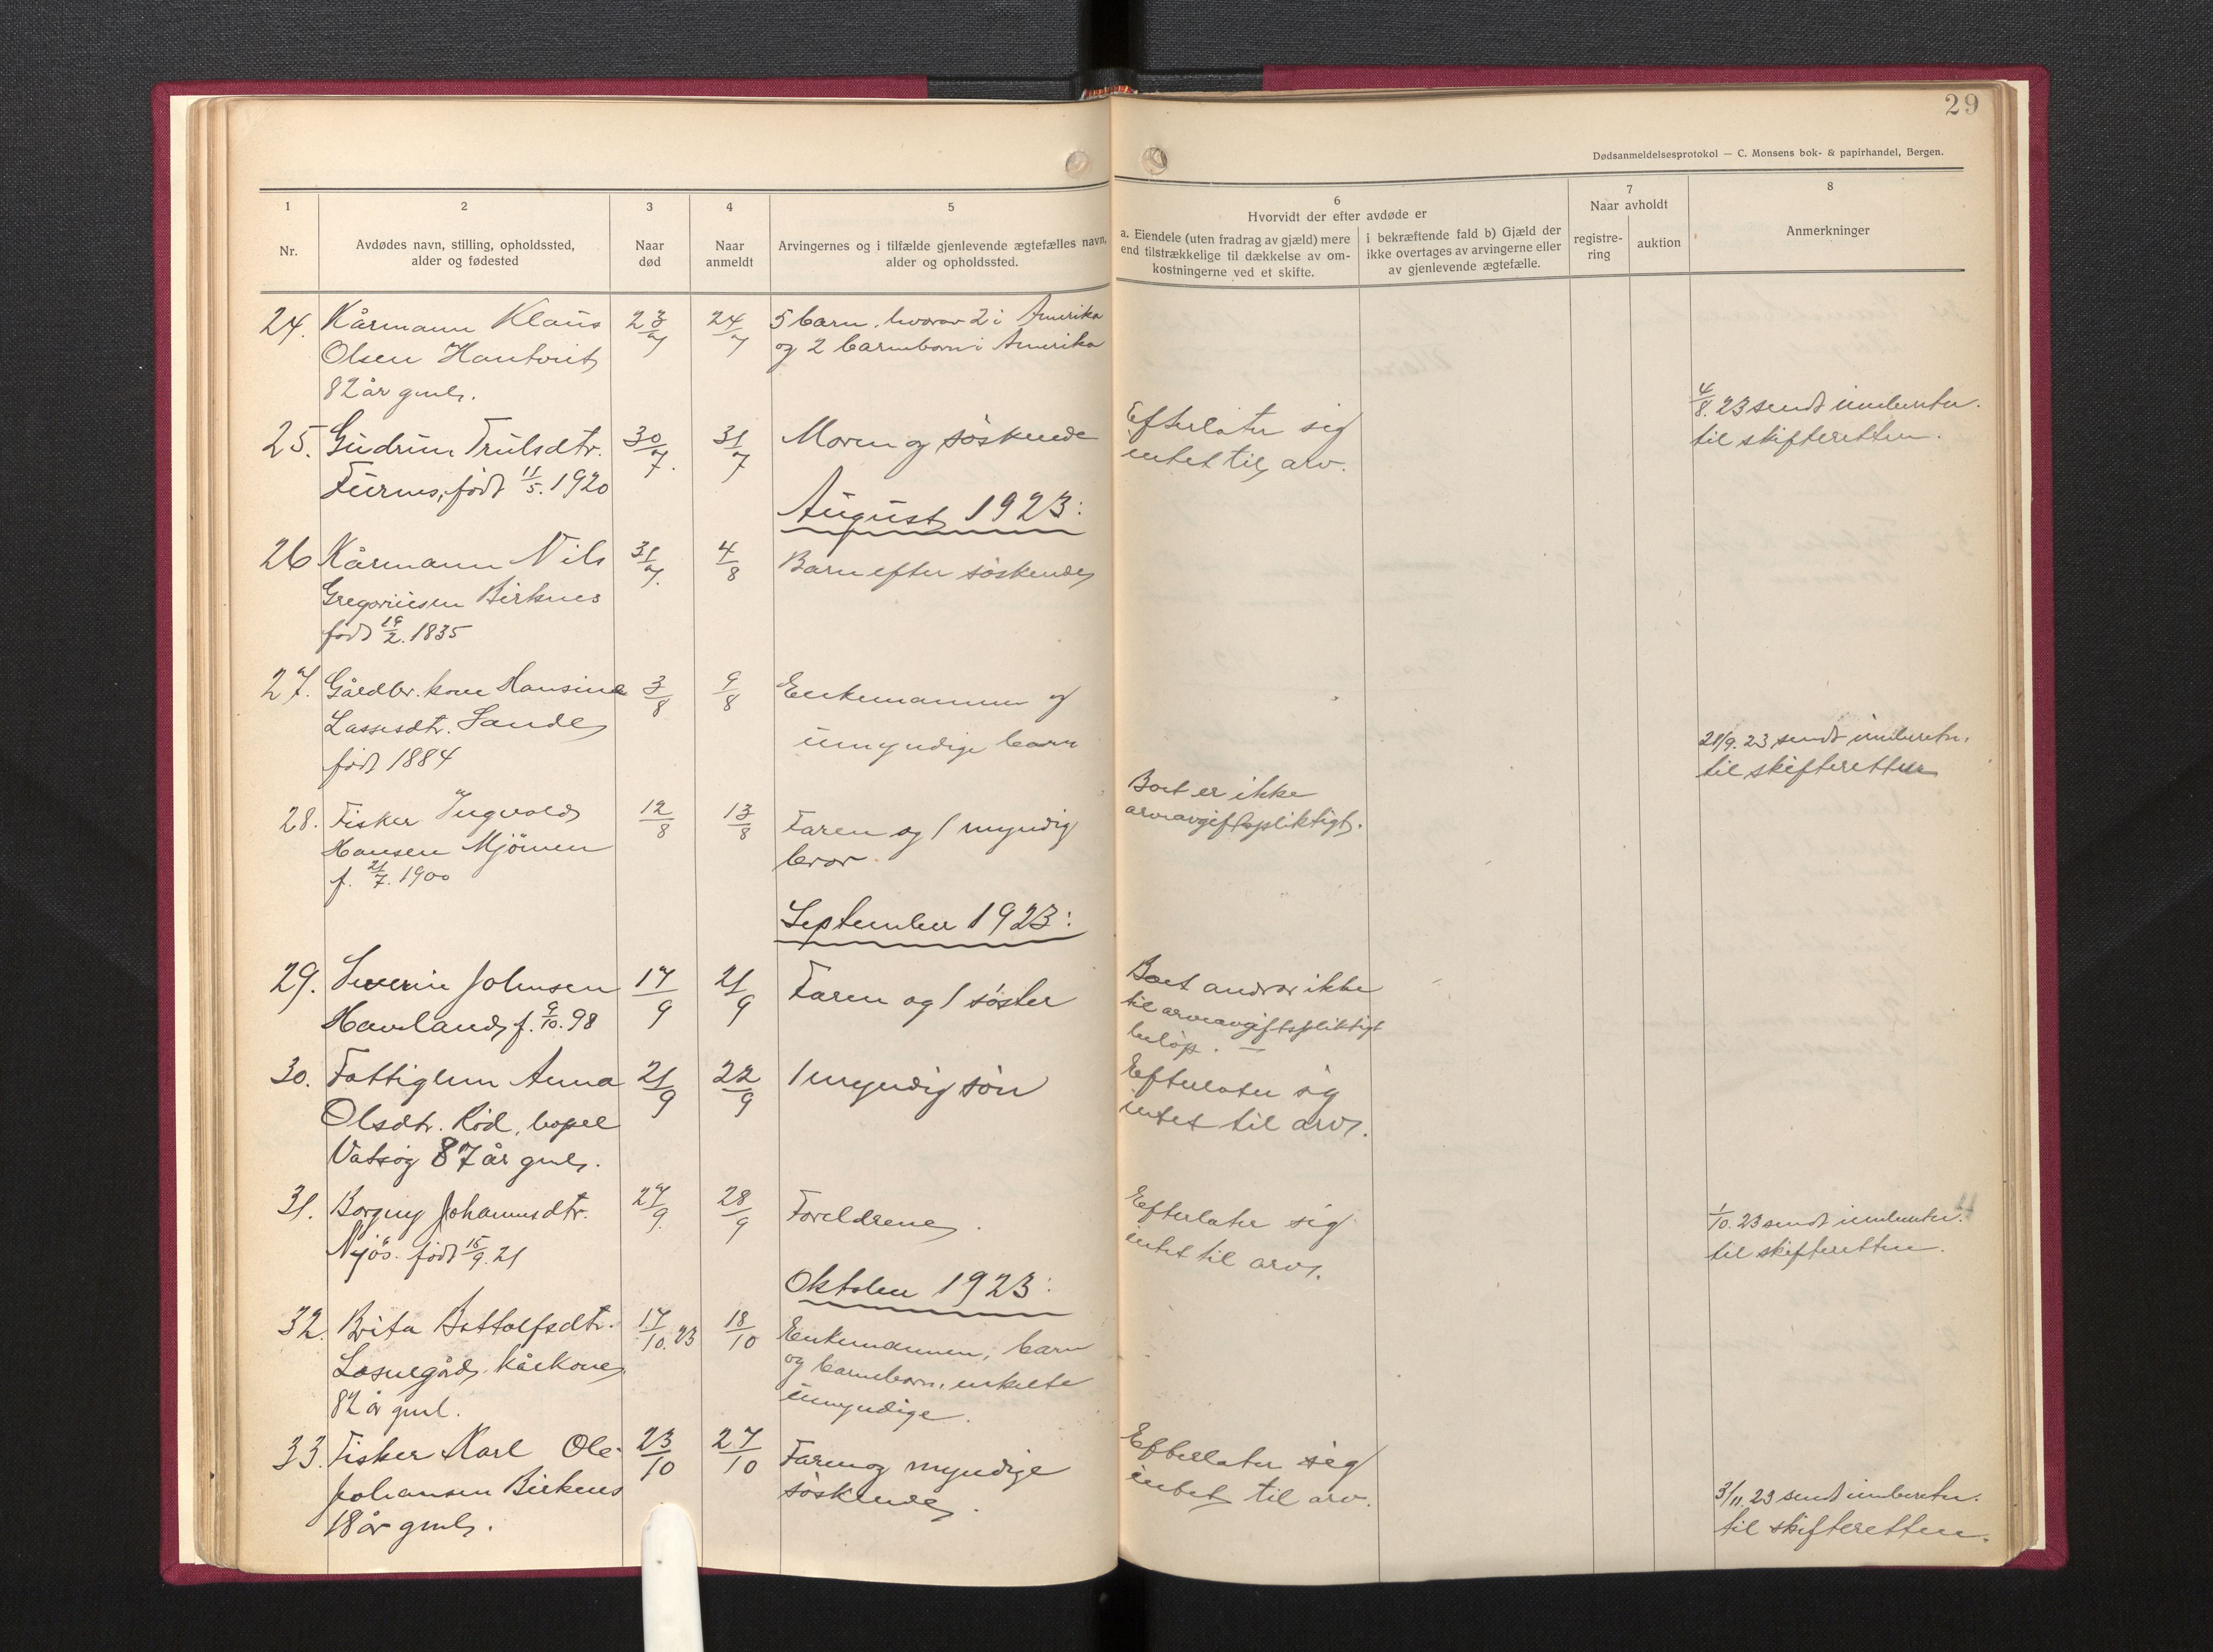 29
Dødsanmeldelsesprotokol — C. Monsens bok- & papirhandel, Bergen.
1
2
3
4
5
6
7
8
Nr.
Avdødes navn, stilling, opholdssted,
alder og fødested
Naar
død
Naar
anmeldt
Arvingernes og i tilfælde gjenlevende ægtefælles navn,
alder og opholdssted.
Hvorvidt der efter avdøde er
a. Eiendele (uten fradrag av gjæld) mere
end tilstrækkelige til dækkelse av om-
kostningerne ved et skifte.
i bekræftende fald b) Gjæld der
ikke overtages av arvingerne eller
av gjenlevende ægtefælle.
Naar avholdt
registre-
ring
auktion
Anmerkninger
24. Kårmann Klaus 23/7 24/7 5 barn, hvorav 2 i Amerika
Olsen Hantveit og 2 barnebarn i Amerika
82 år gml.
4/8. 23 sendt innberetn.
til skifteretten.
25. Gudrun Trulsdtr. 30/7. 31/7 Moren og søskende Efterlater sig
Furnes, født 11/5. 1920 intet til arv.
August 1923:
26 Kårmann Nils 31/7. 4/8 Barn efter søskende
Gregoriusen Birknes
født 19/2. 1835
27. Gårdbr. kone Hansine 3/8 9/8 Enkemannen og
Lassesdtr. Sande umyndige barn
født 1884
21/9. 23 sendt innberetn.
til skifteretten
28. Fisker Ingvald 12/8 13/8 Faren og 1 myndig Boet er ikke
Hansen Mjømen bror. arveavgiftspliktigt.
f. 21/7. 1900
September 1923:
29. Severin Johnsen 17/9 21/9 Faren og 1 søster Boet andrar ikke
Haveland f. 9/10. 98 til arveavgiftspliktigt
beløp. —
30. Fattiglem Anna 21/9 22/9 1 myndig søn Efterlater sig
Olsdtr. Röd, bopel intet til arv.
Vatsøg 87 år gml.
31. Borgny Johannesdtr. 27/9. 28/9 Foreldrene. Efterlater sig
Nyøs. født 15/9. 21 intet til arv.
1/10. 23 sendt innberetn.
til skifteretten.
Oktober 1923:
32. Brita Bottolfsdtr. 17/10. 23 18/10 Enkemannen, barn
Losnegård, kårkone og barnebarn, enkelte
82 år gml. umyndige.
33. Fisker Karl Ole 23/10 27/10 Faren og myndige Efterlater sig
Johansen Birknes søskende. intet til arv.
18 år gml.
3/11. 23 sendt innberetn.
til skifteretten.